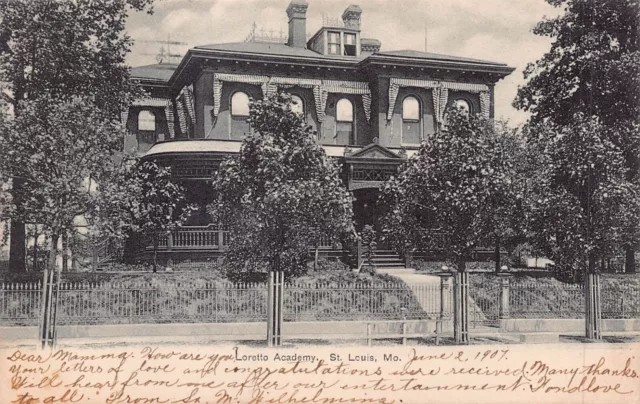 Loretto Academy. St. Louis, Mo.
Dear Mamma. How are you June 2, 1907.
your letters of love and congratulations were received. Many thanks.
Will hear from one after our entertainment. Fond love
to all. From Sr. M. Wilhelmina.